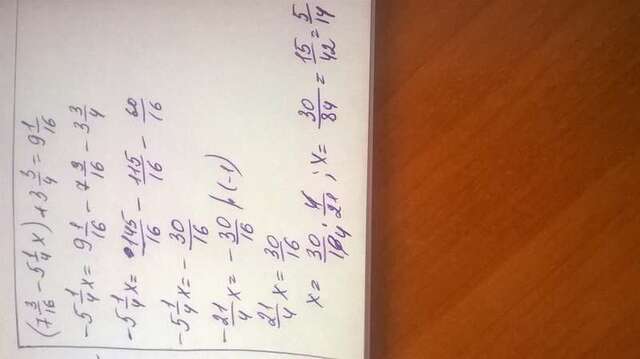 (7 3/16 - 5 1/4 x) + 3 3/4 = 9 1/16
-5 1/4 x = 9 1/16 - 7 3/16 - 3 3/4
-5 1/4 x = 145/16 - 115/16 - 60/16
-5 1/4 x = - 30/16
-21/4 x = - 30/16 | · (-1)
21/4 x = 30/16
x = 30/16 4 · 4/21 ; x = 30/84 = 15/42 = 5/14